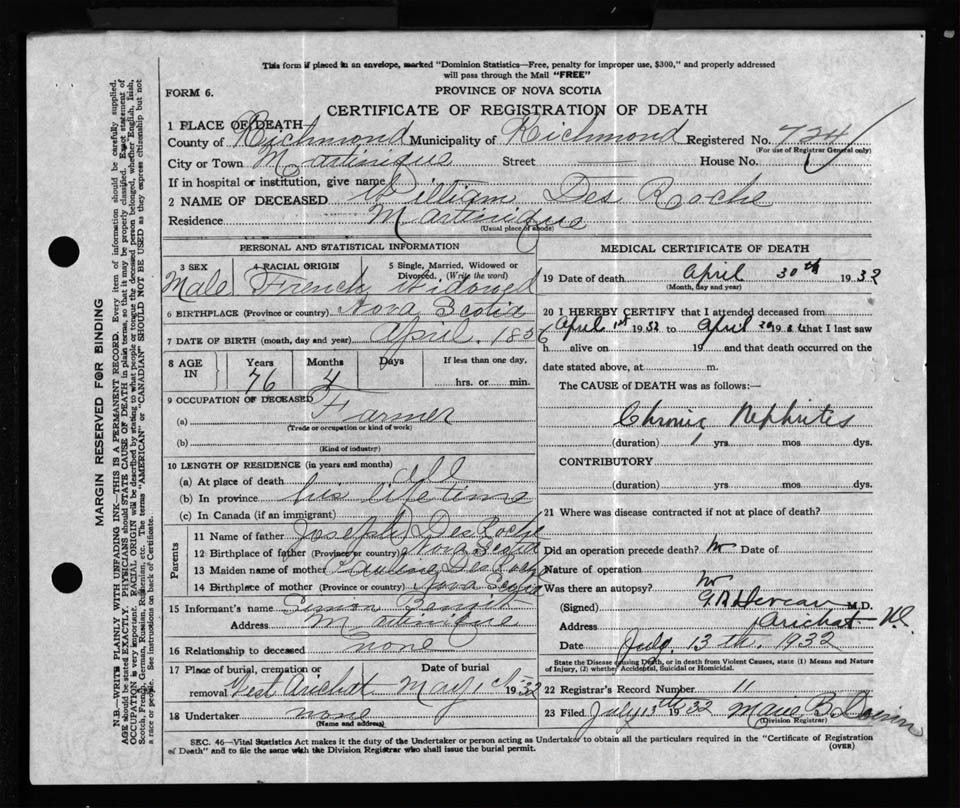 This form if placed in an envelope, marked "Dominion Statistics—Free, penalty for improper use, $300," and properly addressed
will pass through the Mail "FREE"
FORM 6.
PROVINCE OF NOVA SCOTIA
CERTIFICATE OF REGISTRATION OF DEATH
1 PLACE OF DEATH
County of Richmond Municipality of Richmond Registered No. 724
(For use of Registrar General only)
City or Town Martinique Street House No.
If in hospital or institution, give name
2 NAME OF DECEASED William Des Roche
Residence Martinique
(Usual place of abode)
PERSONAL AND STATISTICAL INFORMATION
3 SEX 4 RACIAL ORIGIN 5 Single, Married, Widowed or Divorced. (Write the word)
Male French Widowed
6 BIRTHPLACE (Province or country) Nova Scotia
7 DATE OF BIRTH (month, day and year) April. 1856
8 AGE IN Years Months Days If less than one day,
76 4 hrs. or min.
9 OCCUPATION OF DECEASED
(a) Farmer
(Trade or occupation or kind of work)
(b)
(Kind of industry)
10 LENGTH OF RESIDENCE (in years and months)
(a) At place of death all
(b) In province his life time
(c) In Canada (if an immigrant)
Parents
11 Name of father Joseph Des Roche
12 Birthplace of father (Province or country) Nova Scotia
13 Maiden name of mother Des Roche
14 Birthplace of mother (Province or country) Nova Scotia
15 Informant's name Simon
Address Martinique
16 Relationship to deceased none
17 Place of burial, cremation or removal West Arichat Date of burial May 1st 1932
18 Undertaker none
(Name and address)
MEDICAL CERTIFICATE OF DEATH
19 Date of death April 30th 1932
(Month, day and year)
20 I HEREBY CERTIFY that I attended deceased from
April 1st 1932 to April 29 193 that I last saw
h alive on 19 and that death occurred on the
date stated above, at m.
The CAUSE of DEATH was as follows:—
Chronic Nephrites
(duration) 1 yrs mos dys.
CONTRIBUTORY
(duration) yrs mos dys.
21 Where was disease contracted if not at place of death?
Did an operation precede death? no Date of
Nature of operation
Was there an autopsy? no
(Signed) M.D.
Address Arichat N.S.
Date July 13th. 1932
State the Disease causing Death, or in death from Violent Causes, state (1) Means and Nature
of Injury, (2) whether Accidental, Suicidal or Homicidal.
22 Registrar's Record Number 11
23 Filed July 13th 1932 Marie B.
(Division Registrar)
SEC. 46—Vital Statistics Act makes it the duty of the Undertaker or person acting as Undertaker to obtain all the particulars required in the "Certificate of Registration
of Death" and to file the same with the Division Registrar who shall issue the burial permit.
(OVER)
MARGIN RESERVED FOR BINDING
N.B.—WRITE PLAINLY WITH UNFADING INK—THIS IS A PERMANENT RECORD. Every item of information should be carefully supplied.
AGE should be stated EXACTLY. PHYSICIANS should STATE CAUSE OF DEATH in plain terms, so that it may be properly classified. Exact statement of
OCCUPATION is very important. RACIAL ORIGIN will be described by stating to what people or tongue the deceased person belonged, whether English, Irish,
Scotch, French, German, Russian, Ruthenian, etc. The terms "AMERICAN" or "CANADIAN" SHOULD NOT BE USED as they express citizenship but not
a race or people. See instructions on back of Certificate.